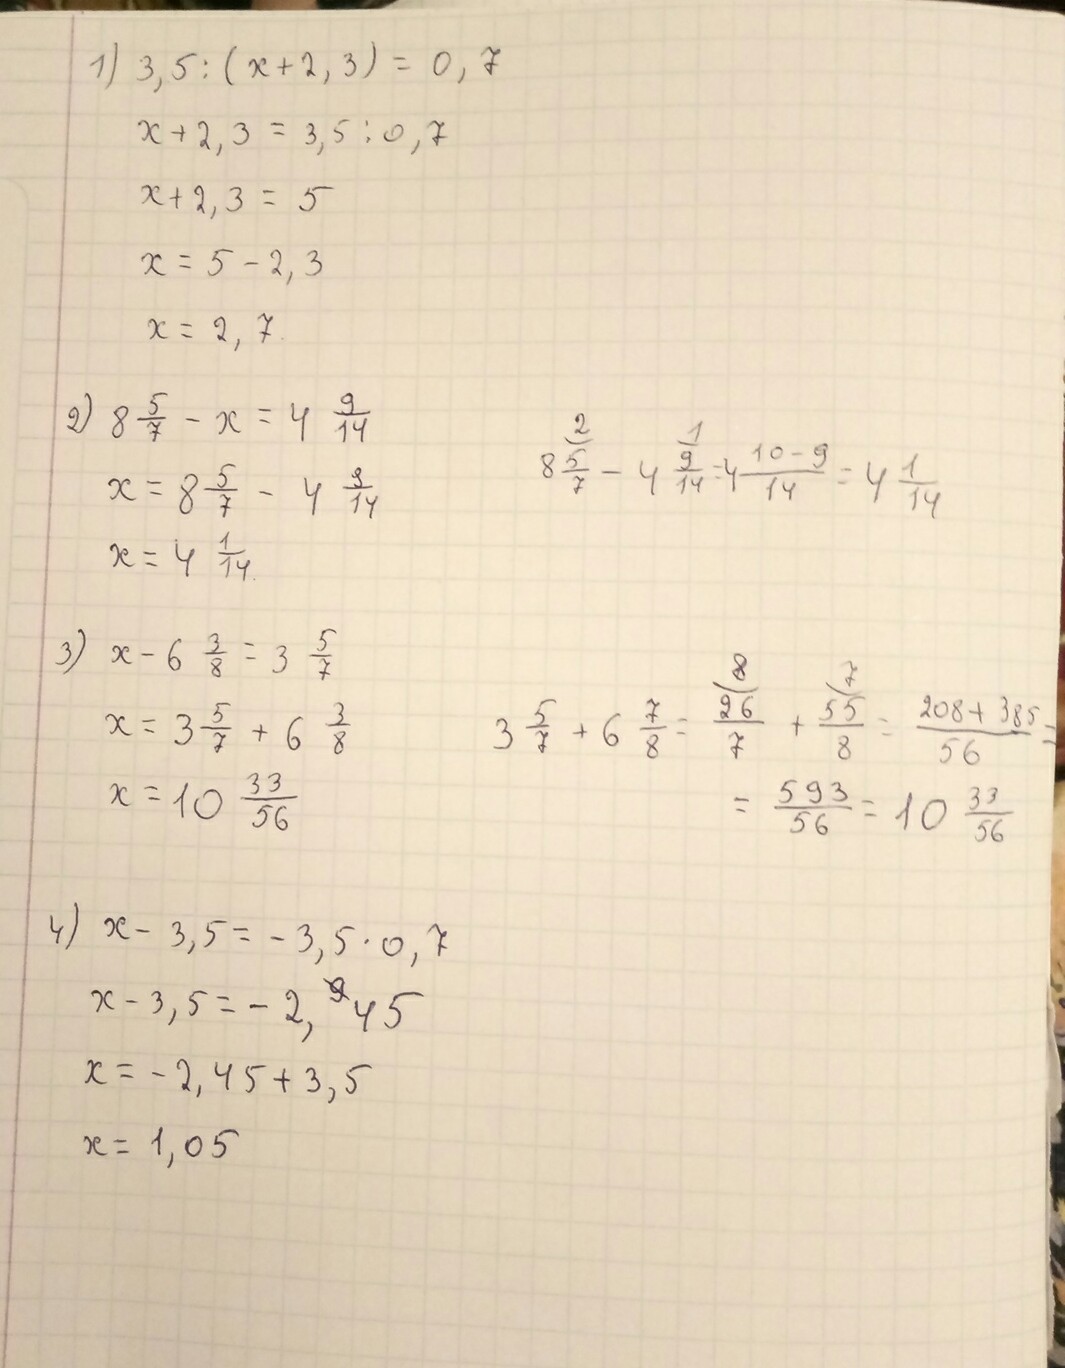 1) 3,5:(x+2,3)=0,7
x+2,3=3,5:0,7
x+2,3=5
x=5-2,3
x=2,7.
2) 8 5/7 - x = 4 9/14
x = 8 5/7 - 4 9/14
x = 4 1/14.
8 5/7 (2 - 4 9/14 (1 = 4 10-9/14 = 4 1/14
3) x - 6 3/8 = 3 5/7
x = 3 5/7 + 6 3/8
x = 10 33/56
3 5/7 + 6 7/8 = 26/7 (8 + 55/8 (7 = 208+385/56 =
= 593/56 = 10 33/56
4) x - 3,5 = -3,5·0,7
x - 3,5 = -2,45
x = -2,45+3,5
x = 1,05